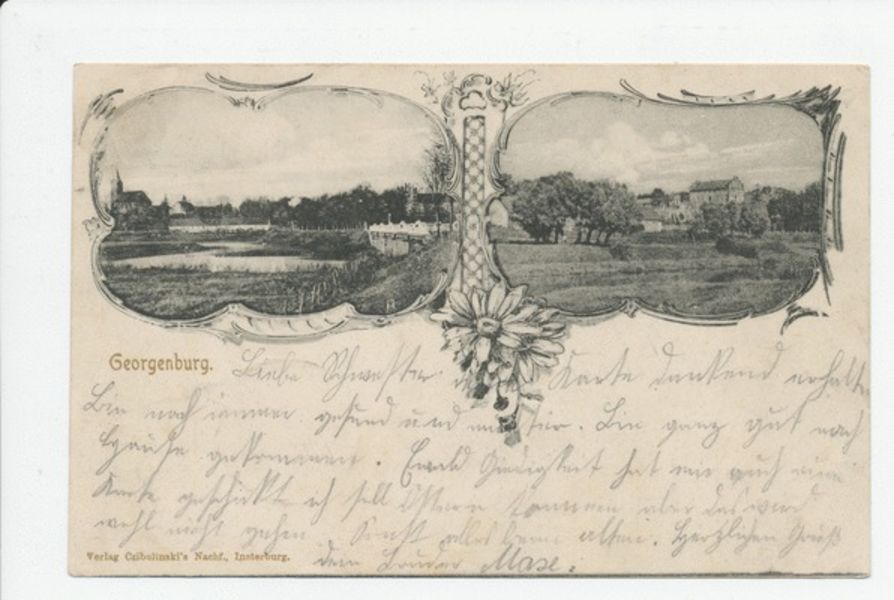 Georgenburg.
Liebe Schwester Karte dankend erhalten
Bin noch immer gesund und munter. Bin ganz gut nach
Hause gekommen. Ewald hat mir auch eine
Karte geschickt ich soll Ostern kommen aber das wird
wohl nicht gehen. Sonst alles beim alten. Herzlichen Gruß
dein Bruder Max.
Verlag Czibulinski's Nachf., Insterburg.